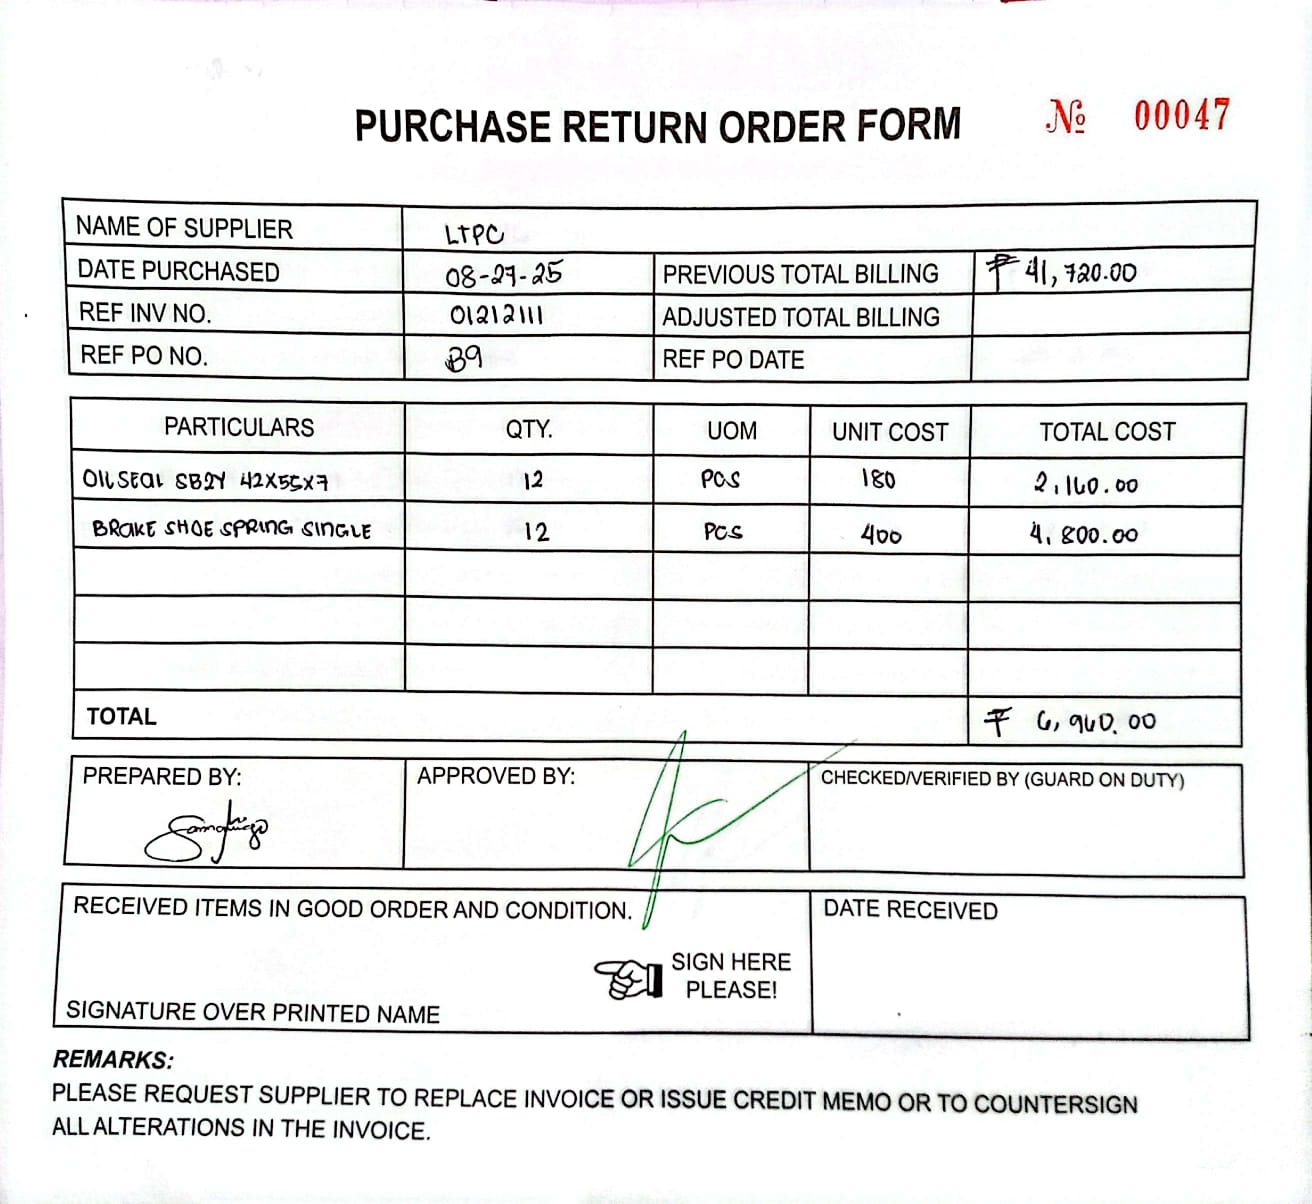 PURCHASE RETURN ORDER FORM № 00047
NAME OF SUPPLIER LTPC
DATE PURCHASED 08-27-25 PREVIOUS TOTAL BILLING ₱ 41,720.00
REF INV NO. 01212111 ADJUSTED TOTAL BILLING
REF PO NO. B9 REF PO DATE
PARTICULARS QTY. UOM UNIT COST TOTAL COST
OIL SEAL SB2Y 42X55X7 12 PCS 180 2,160.00
BRAKE SHOE SPRING SINGLE 12 PCS 400 4,800.00
TOTAL ₱ 6,960.00
PREPARED BY: APPROVED BY: CHECKED/VERIFIED BY (GUARD ON DUTY)
RECEIVED ITEMS IN GOOD ORDER AND CONDITION. DATE RECEIVED
SIGN HERE
PLEASE!
SIGNATURE OVER PRINTED NAME
REMARKS:
PLEASE REQUEST SUPPLIER TO REPLACE INVOICE OR ISSUE CREDIT MEMO OR TO COUNTERSIGN
ALL ALTERATIONS IN THE INVOICE.